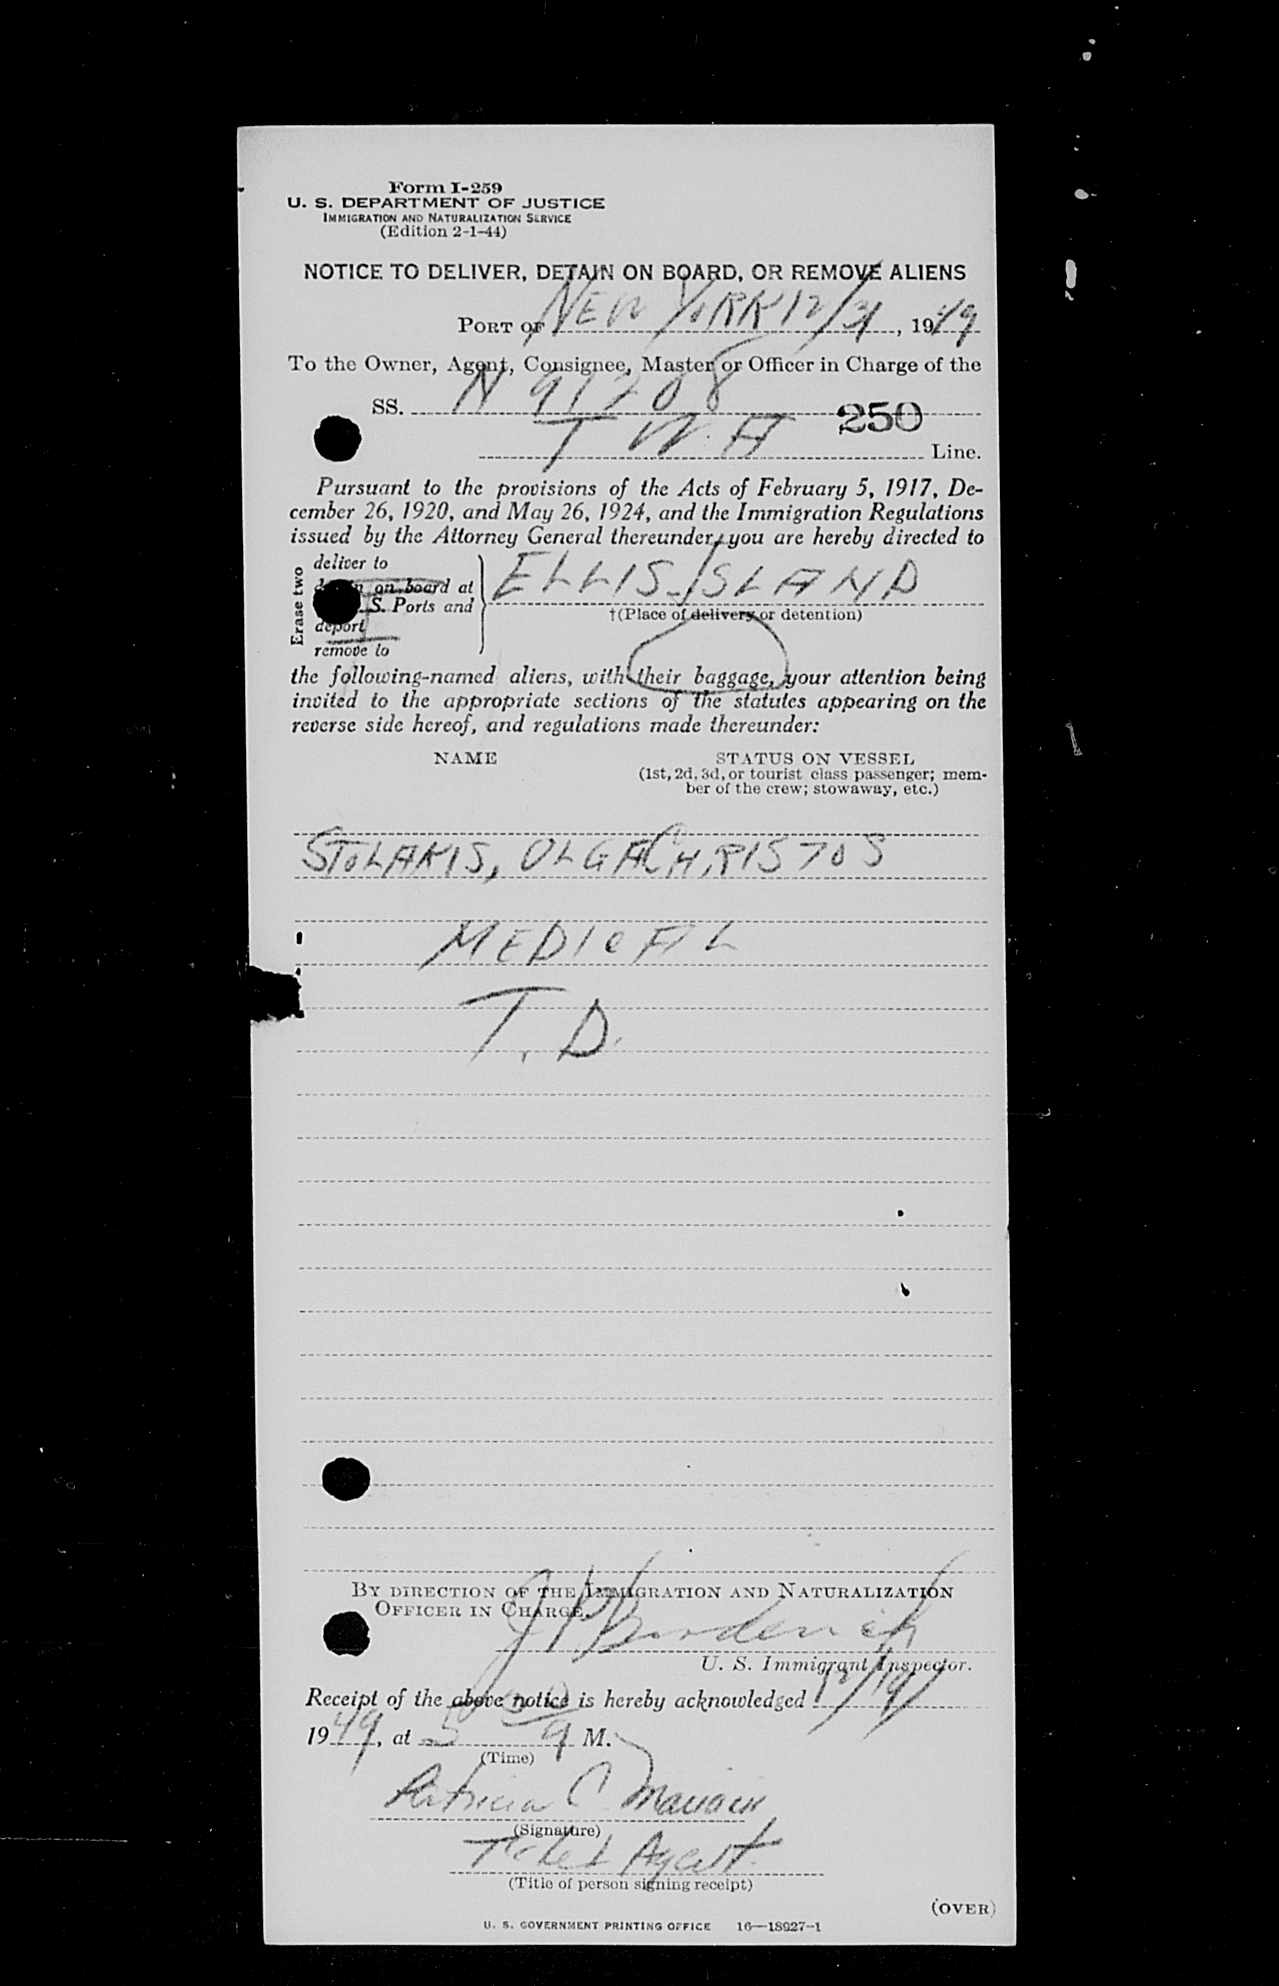 Form I-259
U. S. DEPARTMENT OF JUSTICE
IMMIGRATION AND NATURALIZATION SERVICE
(Edition 2-1-44)
NOTICE TO DELIVER, DETAIN ON BOARD, OR REMOVE ALIENS
PORT OF NEW YORK 12/31, 1949
To the Owner, Agent, Consignee, Master or Officer in Charge of the
SS. N 91208
250
T W A Line.
Pursuant to the provisions of the Acts of February 5, 1917, De-
cember 26, 1920, and May 26, 1924, and the Immigration Regulations
issued by the Attorney General thereunder, you are hereby directed to
Erase two
deliver to
on board at
S. Ports and
deport
remove to
ELLIS ISLAND
†(Place of delivery or detention)
the following-named aliens, with their baggage, your attention being
invited to the appropriate sections of the statutes appearing on the
reverse side hereof, and regulations made thereunder:
NAME STATUS ON VESSEL
(1st, 2d, 3d, or tourist class passenger; mem-
ber of the crew; stowaway, etc.)
STOLAKIS, OLGA CHRISTOS
MEDICAL
T. D.
BY DIRECTION OF THE IMMIGRATION AND NATURALIZATION
OFFICER IN CHARGE.
J P
U. S. Immigrant Inspector.
Receipt of the above notice is hereby acknowledged
1949, at 5 M.
(Time)
Patricia C.
(Signature)
Ticket Agent
(Title of person signing receipt)
(OVER)
U. S. GOVERNMENT PRINTING OFFICE 16—18927-1